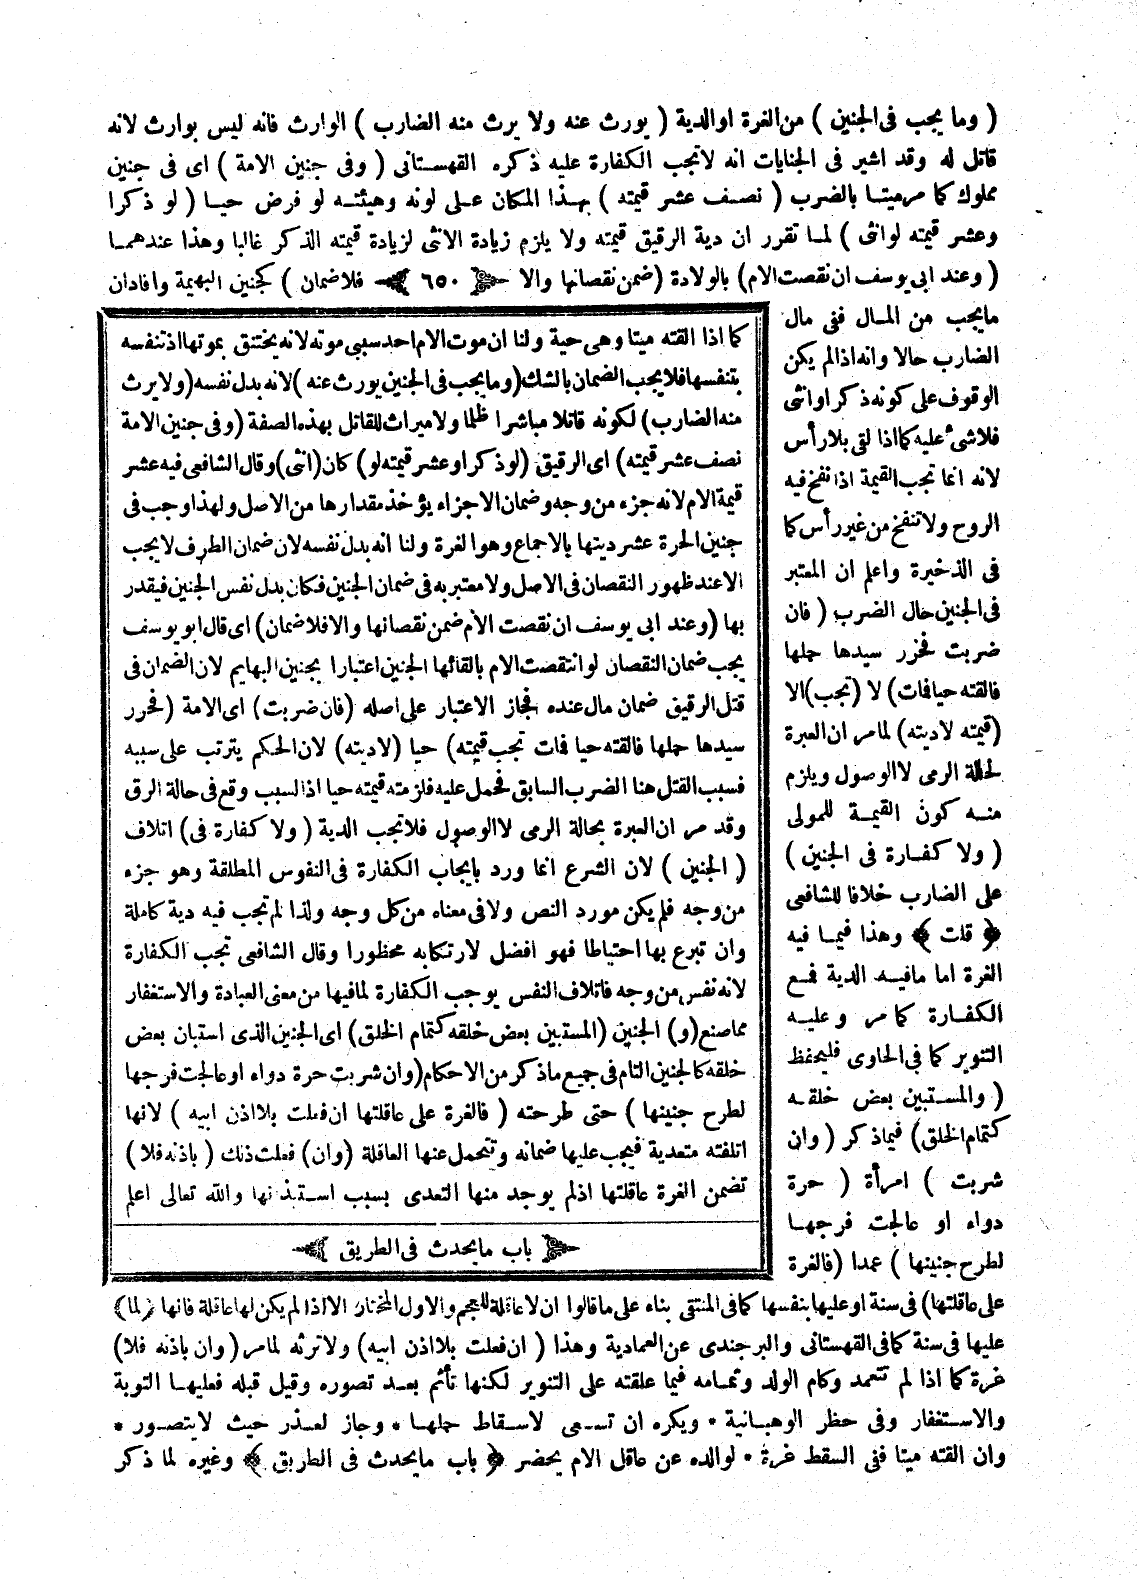 ( وما يجب فى الجنين ) من الغرة او الدية ( يورث عنه ولا يرث منه الضارب ) الوارث فانه ليس بوارث لانه
قاتل له وقد اشير فى الجنايات انه لا تجب الكفارة عليه ذكره القهستانى ( وفى جنين الامة ) اى فى جنين
مملوك كما مر ميتا بالضرب ( نصف عشر قيمته ) بهذا المكان على لونه وهيئته لو فرض حيا ( لو ذكرا
وعشر قيمته لو انثى ) لما تقرر ان دية الرقيق قيمته ولا يلزم زيادة الانثى لزيادة قيمته الذكر غالبا وهذا عندهما
( وعند ابى يوسف ان نقصت الام) بالولادة (ضمن نقصانها والا ﴿ ٦٥٠ ﴾ فلاضمان ) كجنين البهيمة وافادان
مايجب من المال ففى مال
الضارب حالا وانه اذا لم يكن
الوقوف على كونه ذكر اوانثى
فلاشئ عليه كما اذا لقى بلارأس
لانه انما تجب القيمة اذا نفخ فيه
الروح ولا تنفخ من غير رأس كما
فى الذخيرة واعلم ان المعتبر
فى الجنين حال الضرب ( فان
ضربت فحرر سيدها حملها
فالقته حيافات) لا (تجب) الا
(قيمته لاديته) لمامر ان العبرة
لحالة الرمى لا الوصول ويلزم
منه كون القيمة للمولى
( ولا كفارة فى الجنين )
على الضارب خلافا للشافعى
﴿ قلت ﴾ وهذا فيما فيه
الغرة اما مافيه الدية فمع
الكفارة كما مر وعليه
التنوير كما فى الحاوى فليحفظ
( والمستبين بعض خلقه
كتمام الخلق) فيماذكر ( وان
شربت ) امرأة ( حرة
دواء او عالجت فرجها
لطرح جنينها ) عمدا (فالغرة
كما اذا القته ميتا وهى حية ولنا ان موت الام احد سببى موته لانه يختنق بموتها اذ تنفسه
بتنفسها فلا يجب الضمان بالشك (وما يجب فى الجنين يورث عنه ) لانه بدل نفسه (ولا يرث
منه الضارب) لكونه قاتلا مباشرا ظلما ولاميراث للقاتل بهذه الصفة (وفى جنين الامة
نصف عشر قيمته) اى الرقيق (لو ذكر او عشر قيمته لو) كان (انثى) وقال الشافعى فيه عشر
قيمة الام لانه جزء من وجه وضمان الاجزاء يؤخذ مقدارها من الاصل ولهذا وجب فى
جنين الحرة عشر ديتها بالاجماع وهو الغرة ولنا انه بدل نفسه لان ضمان الطرف لا يجب
الاعند ظهور النقصان فى الاصل ولا معتبر به فى ضمان الجنين فكان بدل نفس الجنين فيقدر
بها (وعند ابى يوسف ان نقصت الأم ضمن نقصانها والا فلا ضمان) اى قال ابو يوسف
يجب ضمان النقصان لو انتقصت الام بالقائها الجنين اعتبارا بجنين البهايم لان الضمان فى
قتل الرقيق ضمان مال عنده فجاز الاعتبار على اصله (فان ضربت) اى الامة (فحرر
سيدها حملها فالقته حيا فات تجب قيمته) حيا (لاديته) لان الحكم يترتب على سببه
فسبب القتل هنا الضرب السابق فحمل عليه فلزمته قيمته حيا اذا لسبب وقع فى حالة الرق
وقد مر ان العبرة بحالة الرمى لا الوصول فلا تجب الدية ( ولا كفارة فى) اتلاف
( الجنين ) لان الشرع انما ورد بايجاب الكفارة فى النفوس المطلقة وهو جزء
من وجه فلم يكن مورد النص ولا فى معناه من كل وجه ولذا لم تجب فيه دية كاملة
وان تبرع بها احتياطا فهو افضل لارتكابه محظورا وقال الشافعى تجب الكفارة
لانه نفس من وجه فاتلاف النفس يوجب الكفارة لما فيها من معنى العبادة والاستغفار
مما صنع (و) الجنين (المستبين بعض خلقه كتمام الخلق) اى الجنين الذى استبان بعض
خلقه كالجنين التام فى جميع ماذكر من الاحكام (وان شربت حرة دواء او عالجت فرجها
لطرح جنينها ) حتى طرحته ( فالغرة على عاقلتها ان فعلت بلا اذن ابيه ) لانها
اتلفته متعدية فيجب عليها ضمانه وتتحمل عنها العاقلة (وان) فعلت ذلك ( باذنه فلا )
تضمن الغرة عاقلتها اذ لم يوجد منها التعدى بسبب استيذنها والله تعالى اعلم
﴿ باب مايحدث فى الطريق ﴾
على عاقلتها) فى سنة او عليها بنفسها كما فى المنتقى بناء على ماقالوا ان لا عاقلة للعجم والاول المختار الا اذا لم يكن لها عاقلة فانها (لما)
عليها فى سنة كما فى القهستانى والبرجندى عن العمادية وهذا ( ان فعلت بلا اذن ابيه) ولا ترثه لمامر (وان باذنه فلا)
غرة كما اذا لم تتعمد وكام الولد وتمامه فيما علقته على التنوير لكنها تأثم بعد تصوره وقيل قبله فعليها التوبة
والاستغفار وفى حظر الوهبانية * ويكره ان تسعى لاسقاط حملها * وجاز لعذر حيث لا يتصور *
وان القته ميتا ففى السقط غرة * لوالده عن عاقل الام يحضر ﴿ باب مايحدث فى الطريق ﴾ وغيره لما ذكر